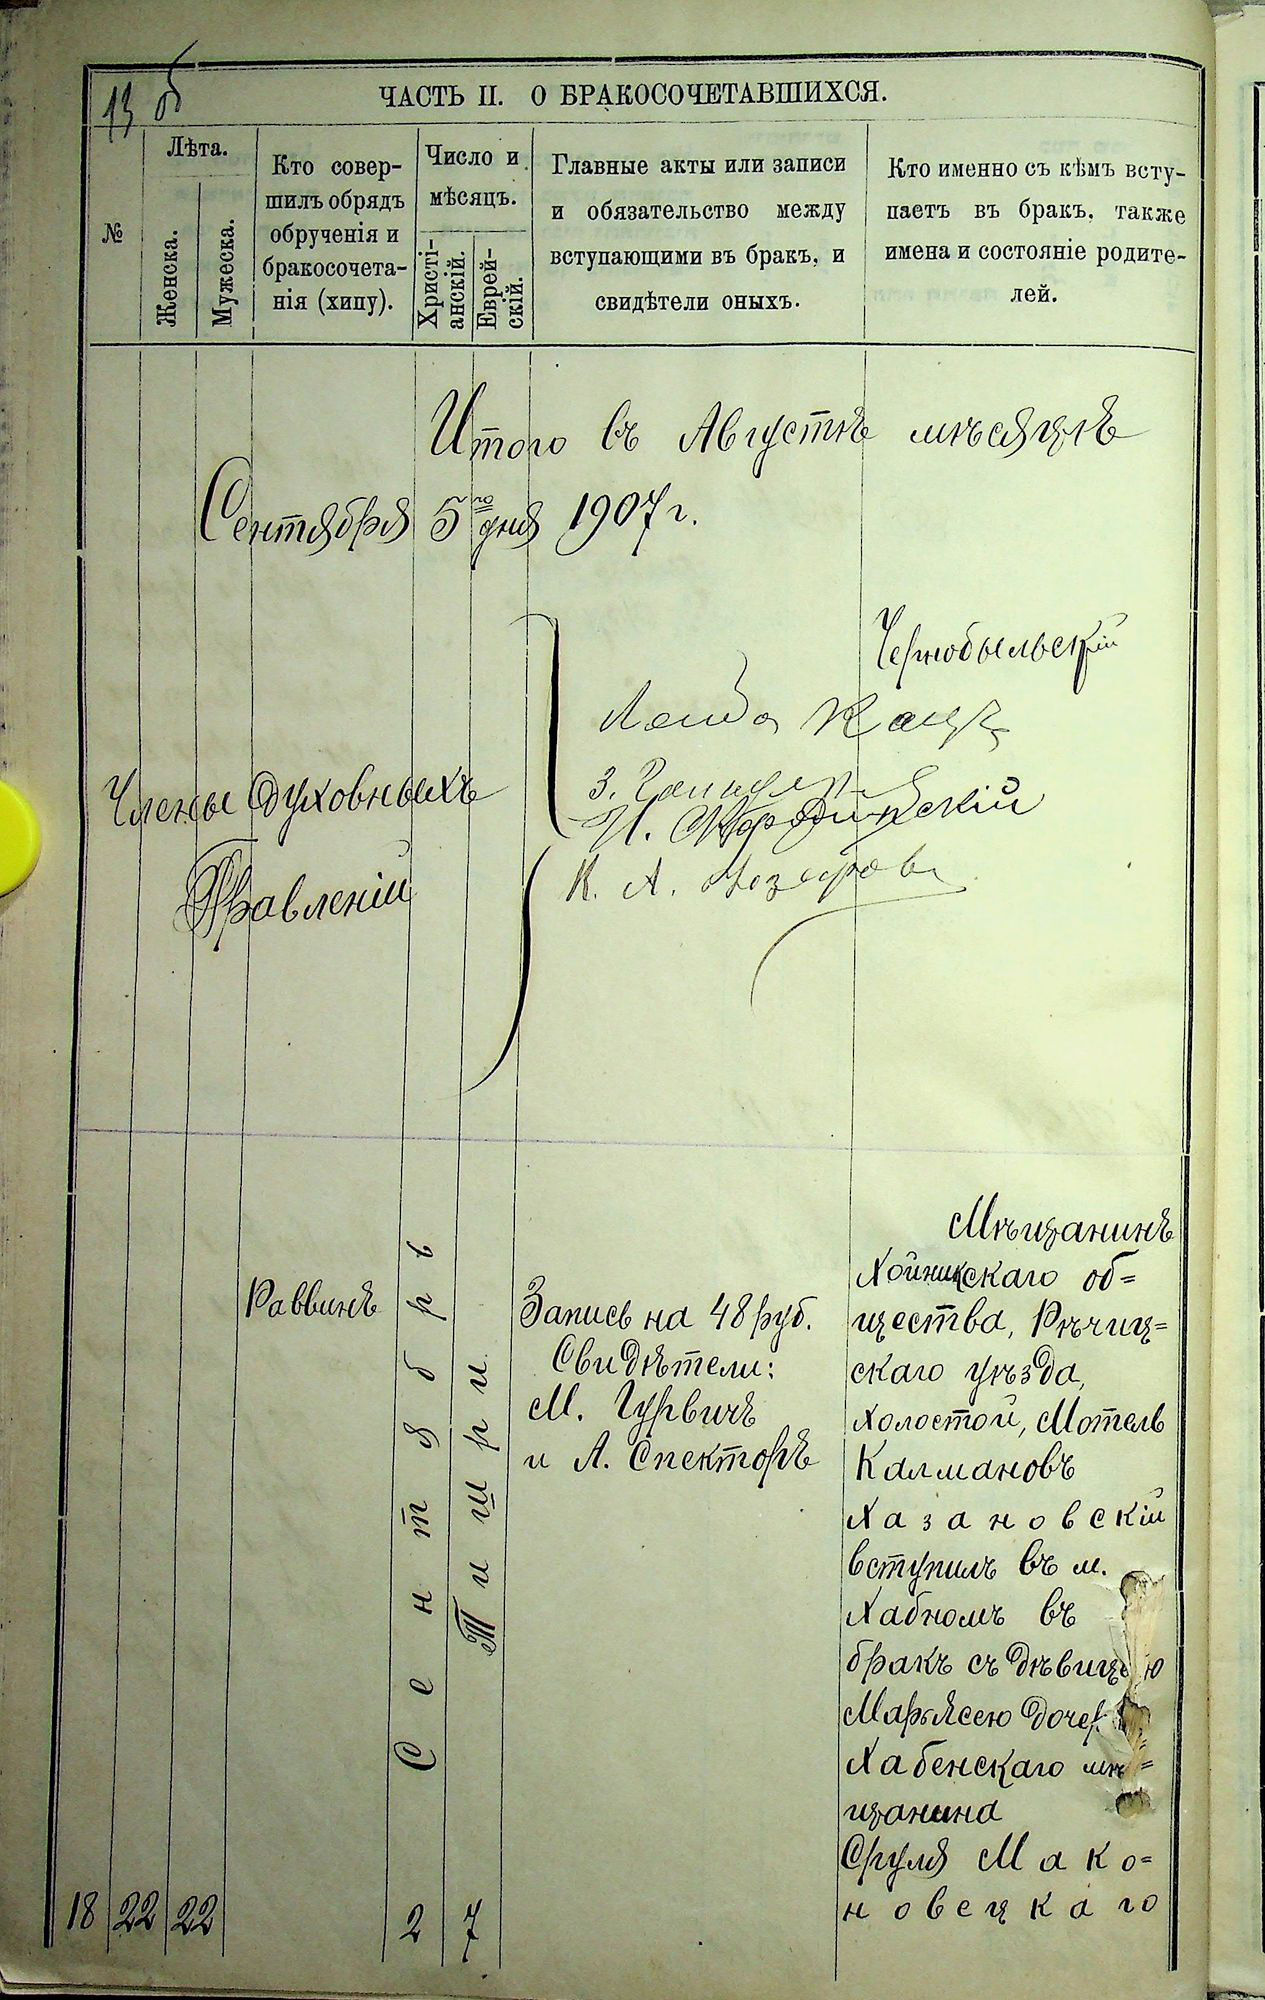 13 об
ЧАСТЬ II. О БРАКОСОЧЕТАВШИХСЯ.
№
Лѣта.
Женска.
Мужеска.
Кто совер-
шилъ обрядъ
обрученія и
бракосочета-
нія (хипу).
Число и
мѣсяцъ.
Христі-
анскій.
Еврей-
скій.
Главные акты или записи
и обязательство между
вступающими въ бракъ, и
свидѣтели оныхъ.
Кто именно съ кѣмъ всту-
паетъ въ бракъ, также
имена и состояніе родите-
лей.
Итого въ Августѣ мѣсяцѣ
Сентября 5го дня 1907 г.
Члены Духовныхъ
Правленій
Чернобыльскій
З.
И.
К. А.
18
22
22
Раввинъ
Сентябрь
2
Тишри
7
Запись на 48 руб.
Свидѣтели:
М. Гурвичъ
и А. Спекторъ
Мѣщанинъ
Хойникскаго об=
щества, Рѣчиц=
скаго уѣзда,
холостой, Мотель
Калмановъ
Хазановскій
вступилъ въ м.
Хабномъ въ
бракъ съ дѣвицею
Марьясею дочер
Хабенскаго мѣ=
щанина
Сруля Мако=
новецкаго